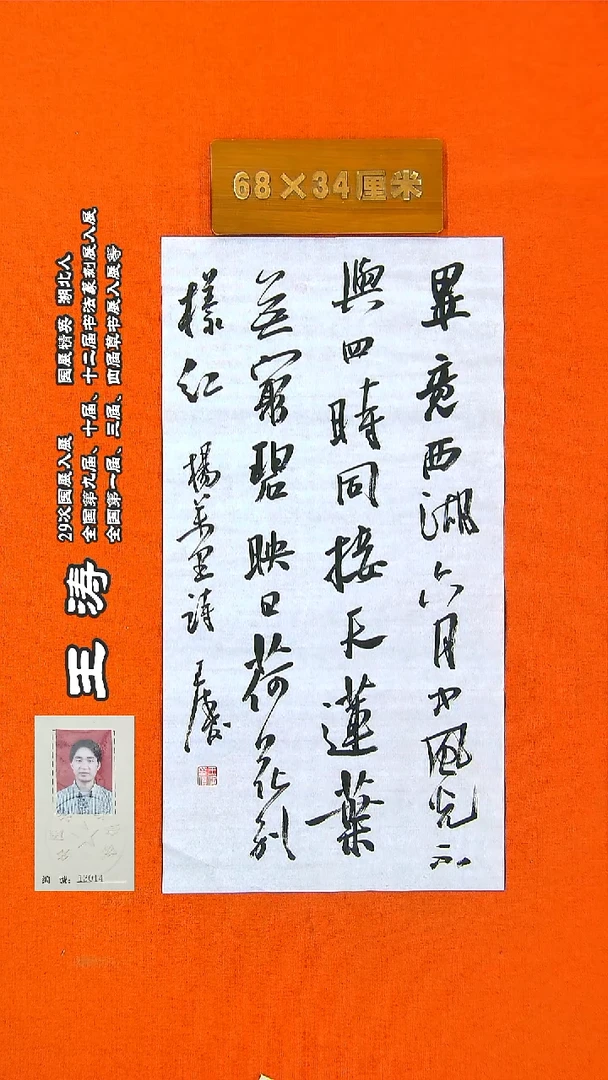 68×34厘米
畢竟西湖六月中風光不
與四時同接天蓮葉
無窮碧映日荷花别
樣紅
楊萬里詩
王涛
29次国展入展 国展精英 湖北人
全国第九届、十届、十二届书法篆刻展入展
全国第一届、三届、四届草书展入展等
12014